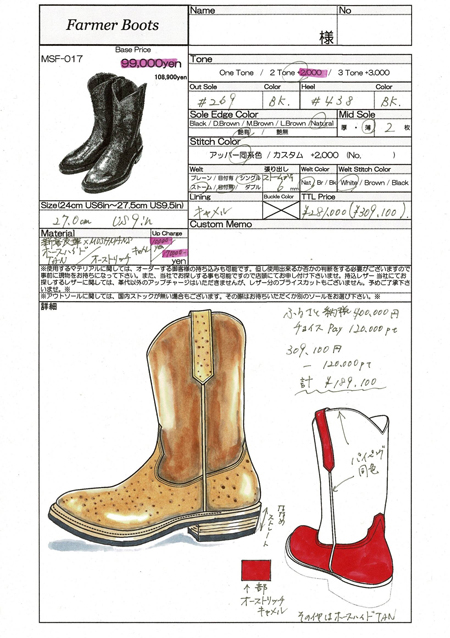 Farmer Boots
Name
No
様
MSF-017
Base Price
99,000yen
108,900yen
Tone
One Tone / 2 Tone +2,000 / 3 Tone +3,000
Out Sole
Color
Heel
Color
#269
BK.
#438
BK.
Sole Edge Color
Mid Sole
Black / D.Brown / M.Brown / L.Brown / Natural
艶有 / 艶無
厚・薄 2 枚
Stitch Color
アッパー同系色 / カスタム +2,000 (No. )
Welt
張り出し
Welt Color
Welt Stitch Color
プレーン / 目付有 / シングル
ストーム / 目付無 / ダブル
6 mm
Nat / Br / Bk
White / Brown / Black
Size(24cm US6in～27.5cm US9.5in)
Lining
Buckle Color
TTL Price
27.0cm US9in
キャメル
¥281,000 (¥309,100)
Material
Up Charge
Custom Memo
オースハイド
TAN
オーストリッチ
yen
※使用するマテリアルに関しては、オーダーする御客様の持ち込みも可能です。但し使用出来るか否かの判断をする必要がございますので
※アウトソールに関しては、国内ストックが無い場合もございます。その際はお持ちいただくか別のソールをお選び下さい。※
詳細
ふるさと納税 400,000円
チョイス Pay 120,000pt
309,100円
- 120,000pt
計 ¥189,100
パイピング
同色
ななめ
ストレート
↑部
オーストリッチ
キャメル
その他はオースハイドTAN